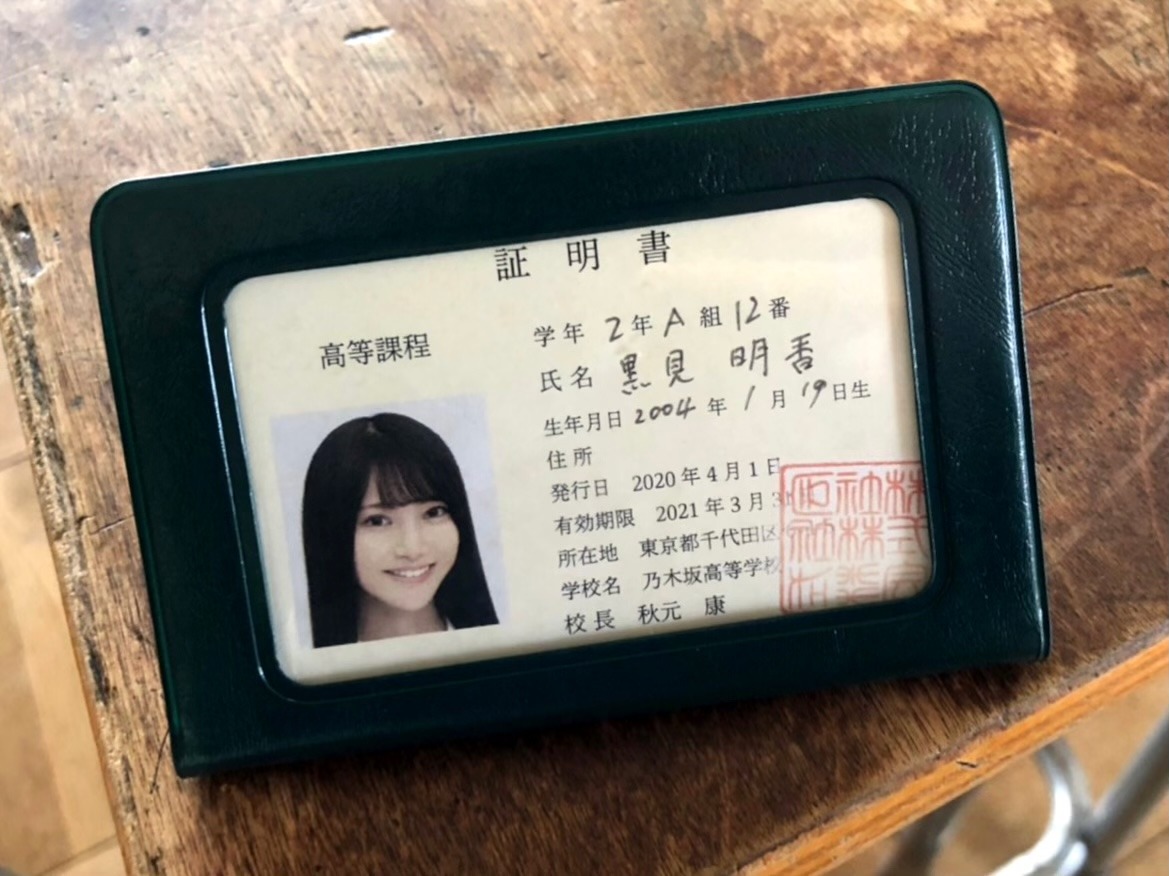 証明書
高等課程
学年 2年A組12番
氏名 黒見 明香
生年月日 2004年1月19日生
住所
発行日 2020年4月1日
有効期限 2021年3月
所在地 東京都千代田区
学校名 乃木坂高等学校
校長 秋元 康